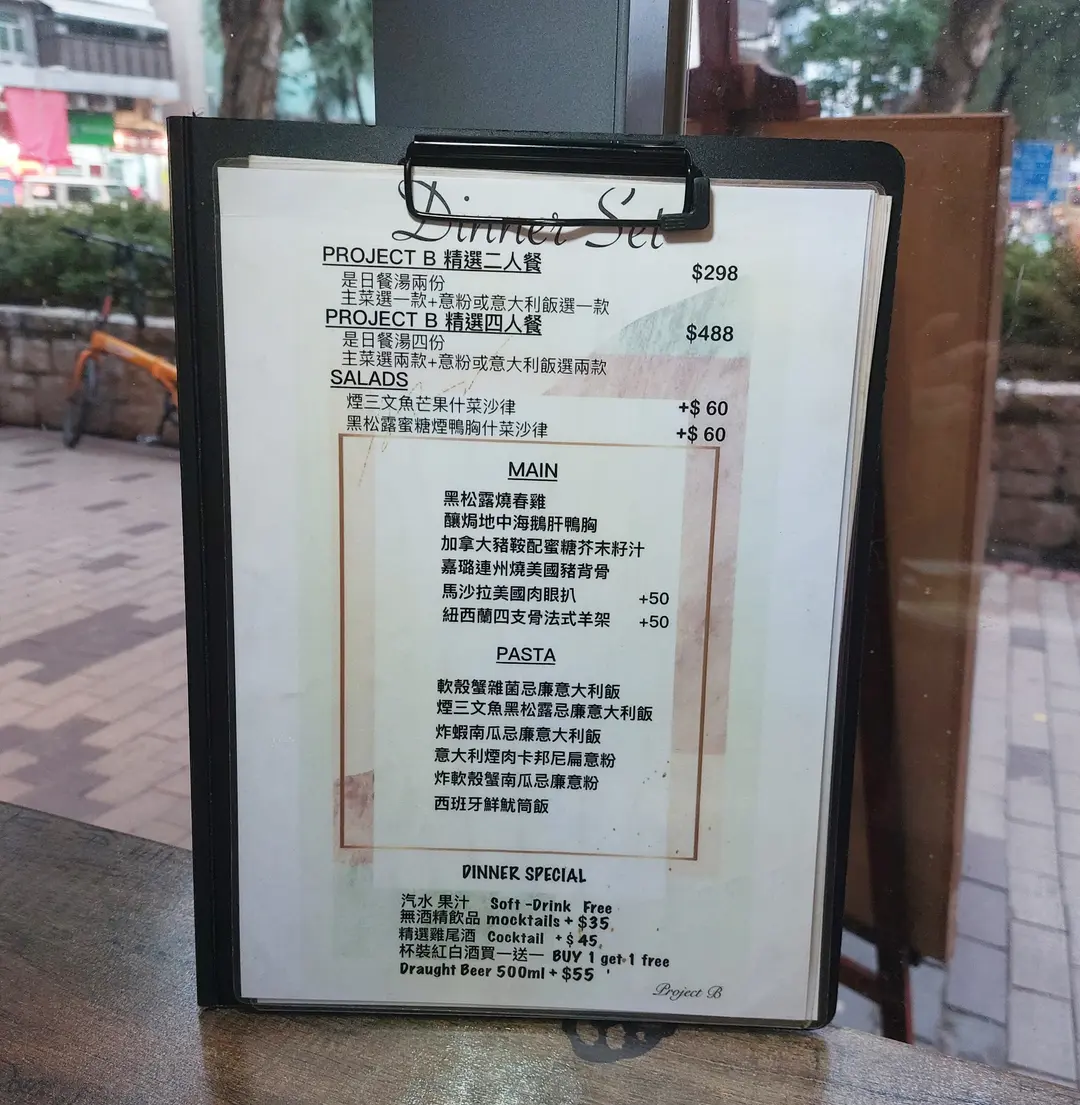 Dinner Set
PROJECT B 精選二人餐 $298
是日餐湯兩份
主菜選一款+意粉或意大利飯選一款
PROJECT B 精選四人餐 $488
是日餐湯四份
主菜選兩款+意粉或意大利飯選兩款
SALADS
煙三文魚芒果什菜沙律 +$ 60
黑松露蜜糖煙鴨胸什菜沙律 +$ 60
MAIN
黑松露燒春雞
釀焗地中海鵝肝鴨胸
加拿大豬鞍配蜜糖芥末籽汁
嘉璐連州燒美國豬背骨
馬沙拉美國肉眼扒 +50
紐西蘭四支骨法式羊架 +50
PASTA
軟殼蟹雜菌忌廉意大利飯
煙三文魚黑松露忌廉意大利飯
炸蝦南瓜忌廉意大利飯
意大利煙肉卡邦尼扁意粉
炸軟殼蟹南瓜忌廉意粉
西班牙鮮魷筒飯
DINNER SPECIAL
汽水 果汁 Soft -Drink Free
無酒精飲品 mocktails + $35
精選雞尾酒 Cocktail + $ 45
杯裝紅白酒買一送一 BUY 1 get 1 free
Draught Beer 500ml + $55
Project B